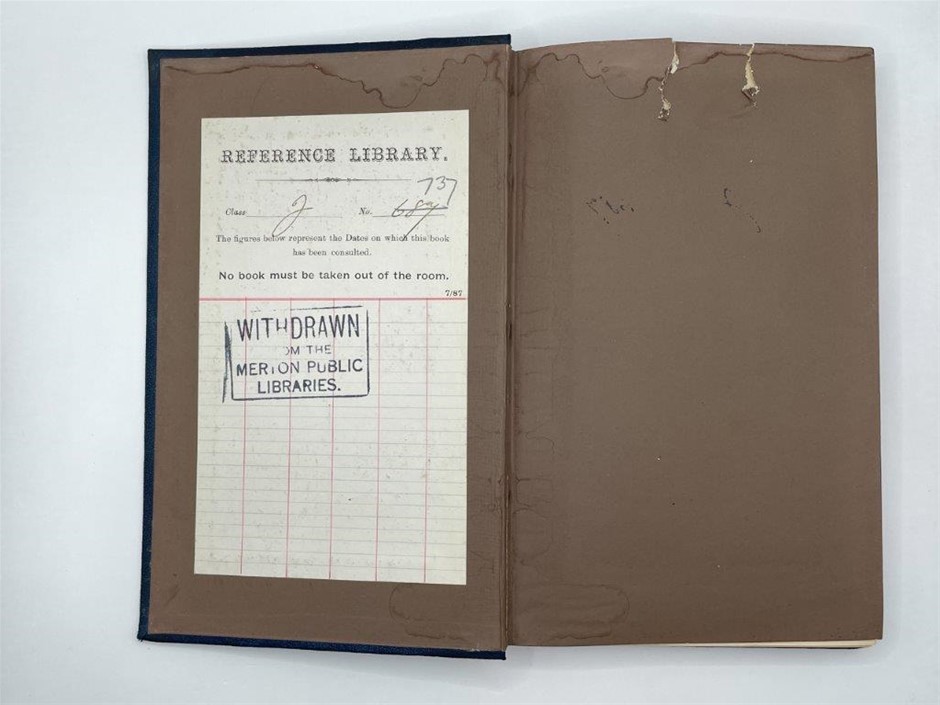 REFERENCE LIBRARY.
737
Class J No.
The figures below represent the Dates on which this book
has been consulted.
No book must be taken out of the room.
7/87
WITHDRAWN
OM THE
MERTON PUBLIC
LIBRARIES.